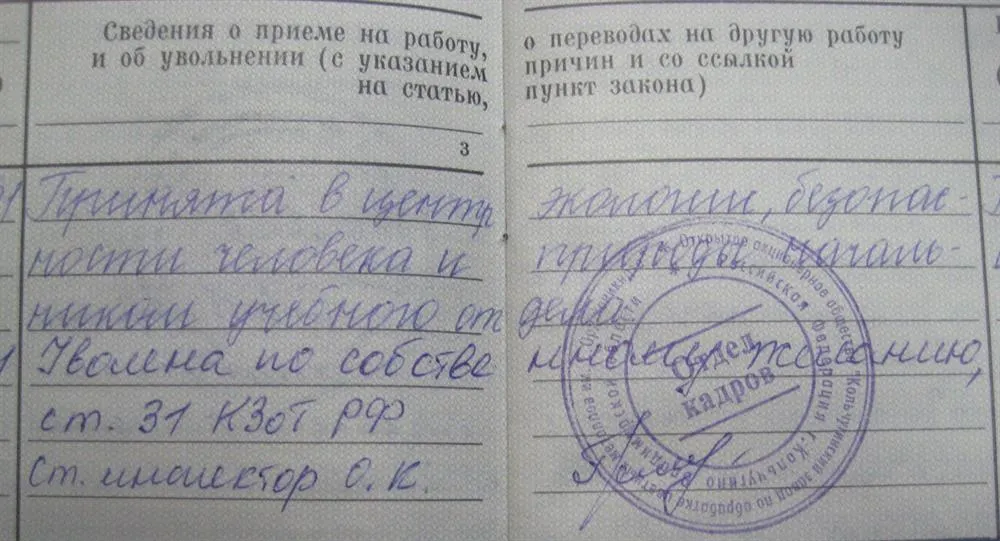 Сведения о приеме на работу, о переводах на другую работу
и об увольнении (с указанием причин и со ссылкой
на статью, пункт закона)
3
Принята в центр экологии, безопас-
ности человека и природы началь-
ником учебного отдела
Уволена по собственному желанию,
ст. 31 КЗоТ РФ
Ст. инспектор О.К.
Открытое акционерное общество "Кольчугинский завод по обработке цветных металлов им.
Российской Федерация г. Кольчугино Владимирской области
Отдел
кадров